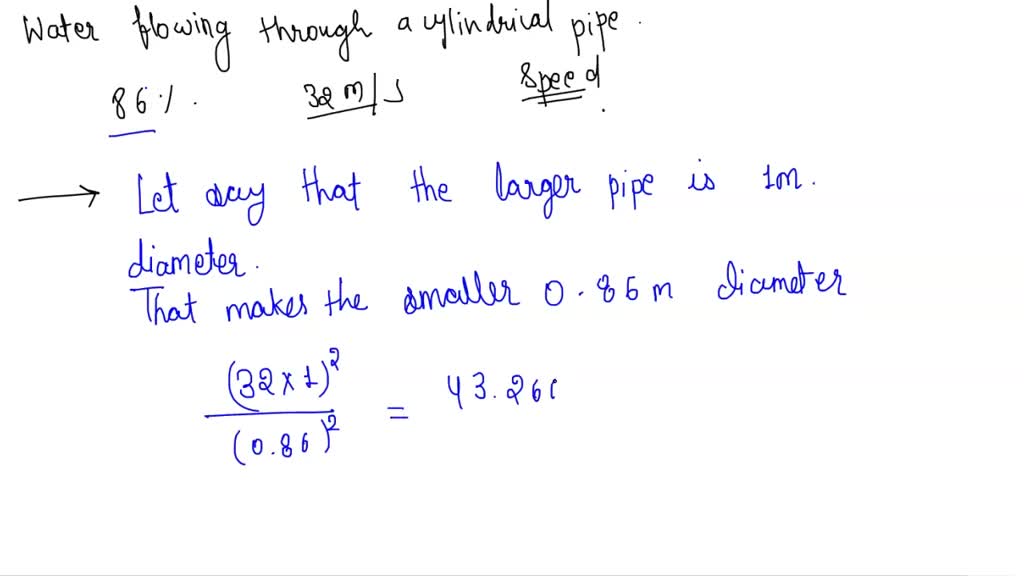 Water flowing through a cylindrical pipe.
86%. 32 m/s speed.
→ Let say that the larger pipe is 1m.
diameter.
That makes the smaller 0.86 m diameter
(32 × 1)² / (0.86)² = 43.266